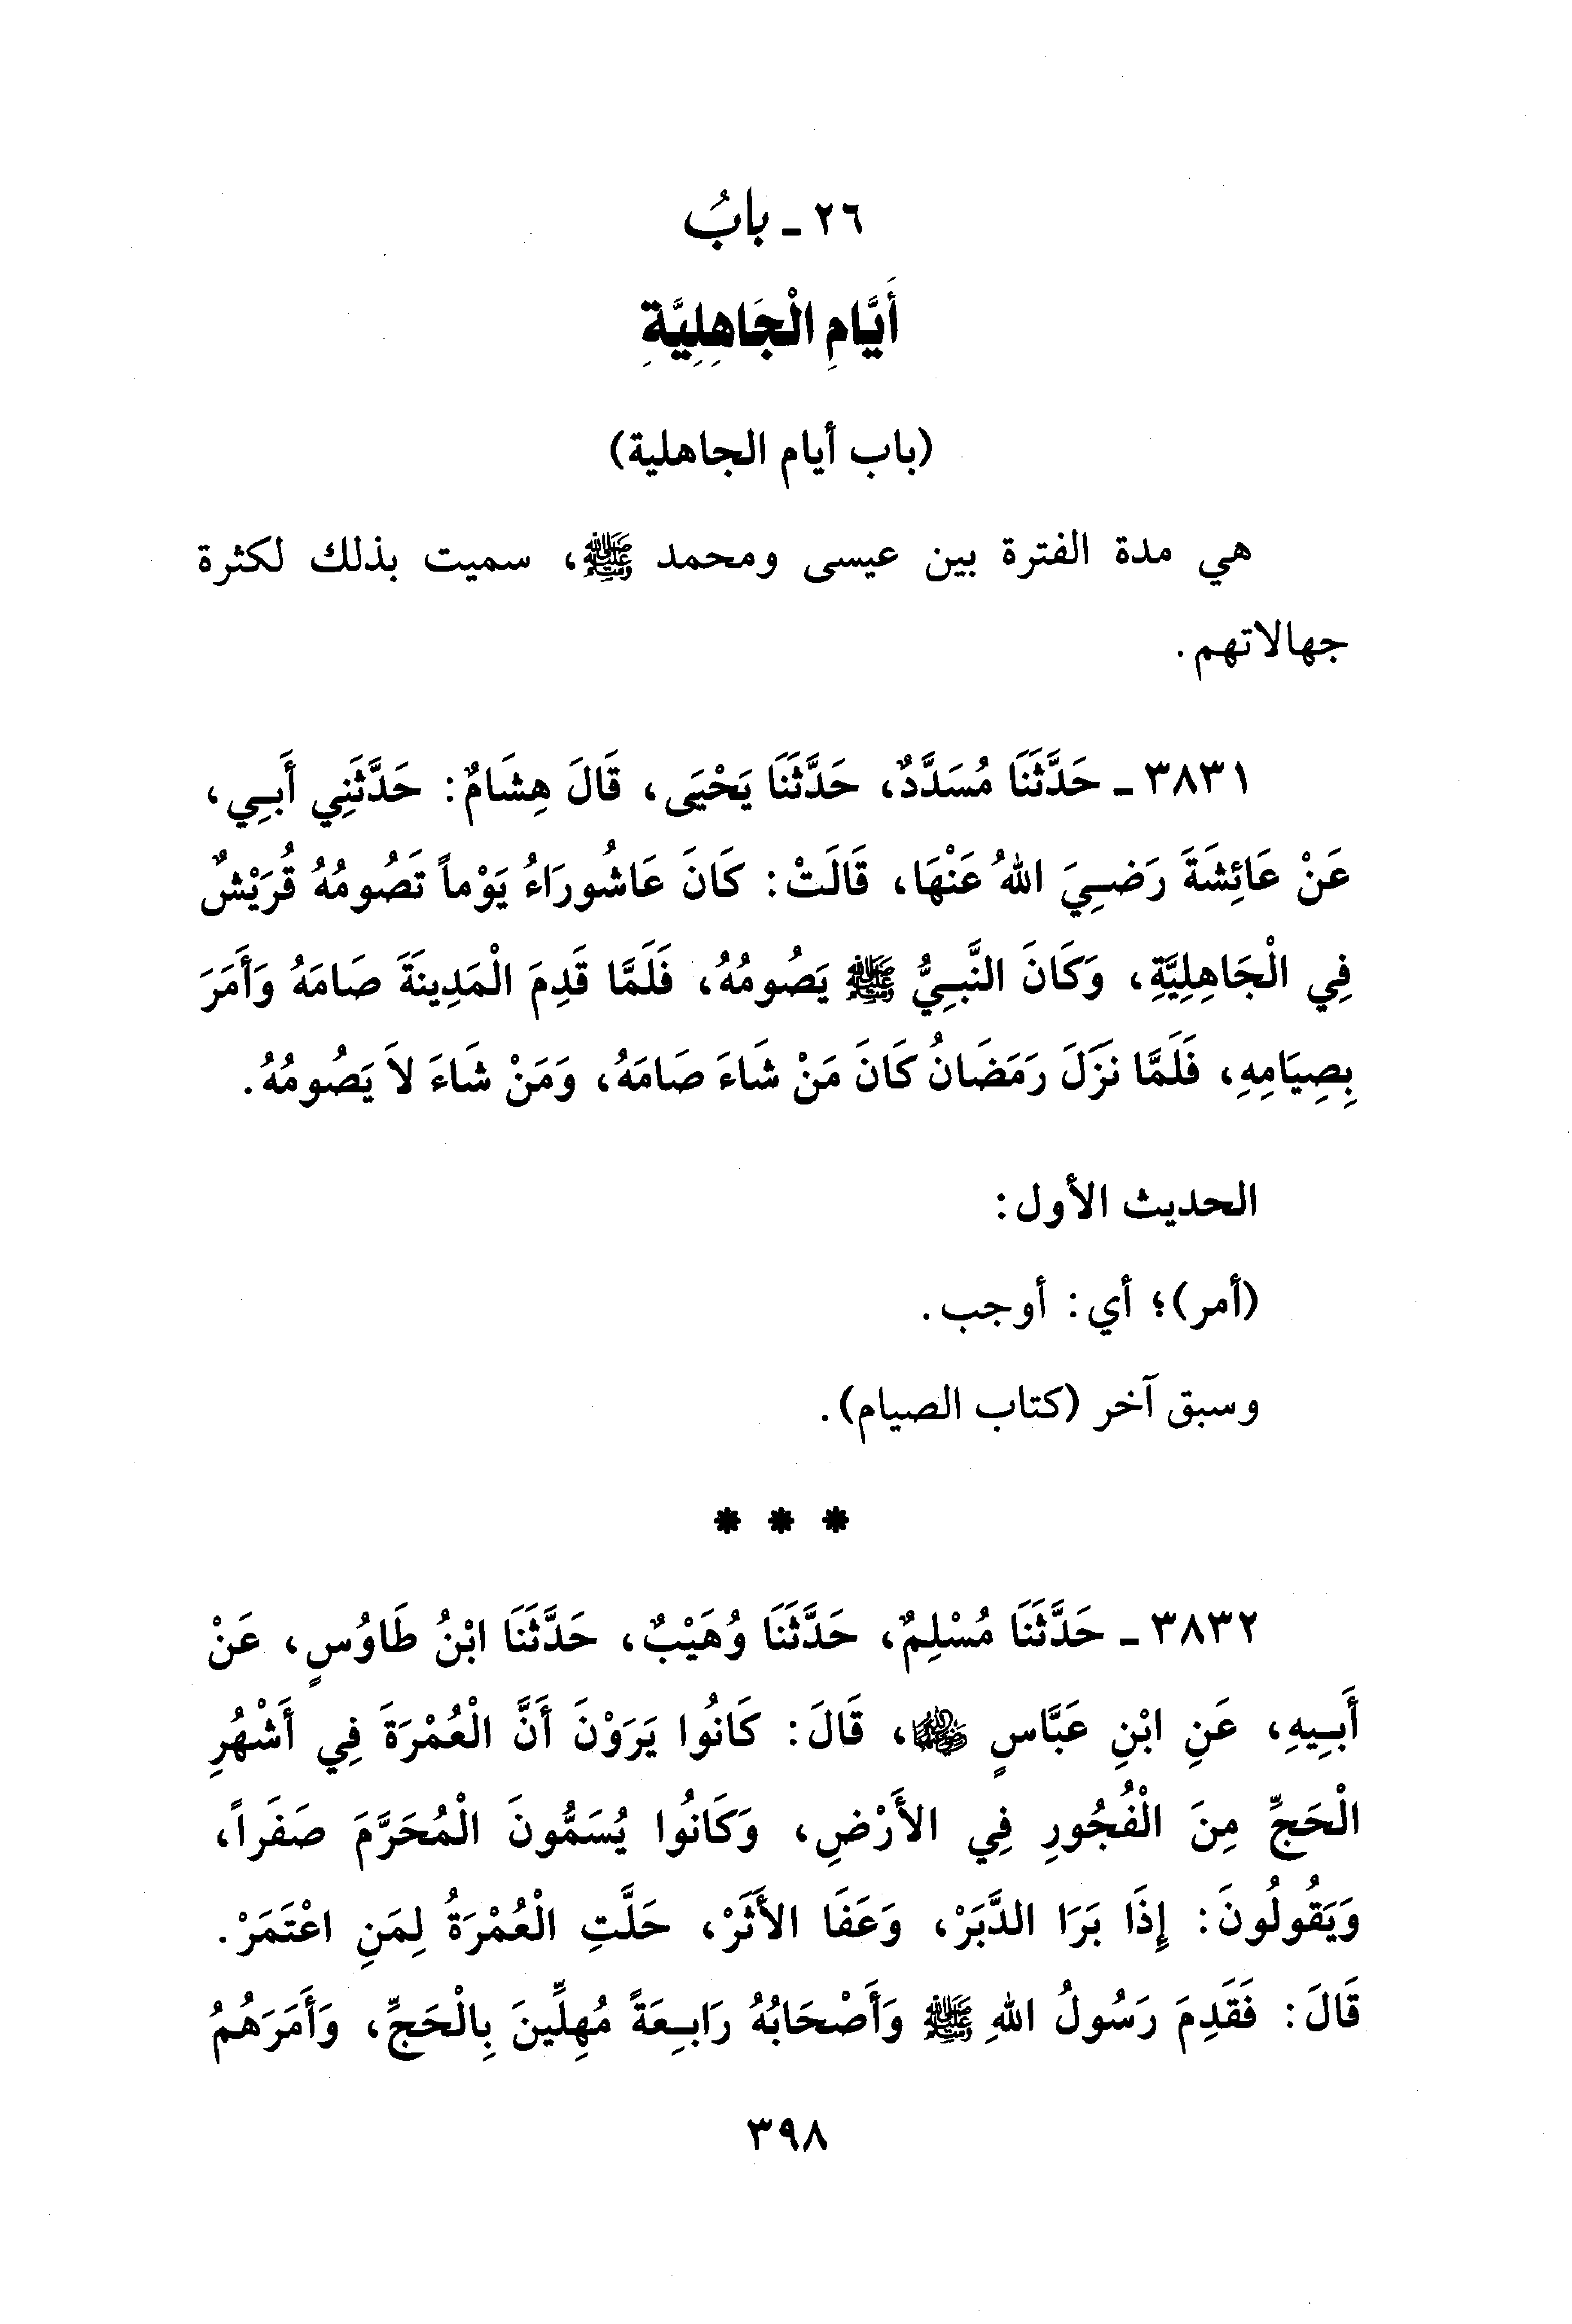 ٢٦ ـ بابُ
أَيَّامِ الْجَاهِلِيَّةِ
(باب أيام الجاهلية)
هي مدة الفترة بين عيسى ومحمد ﷺ، سميت بذلك لكثرة
جهالاتهم.
٣٨٣١ ـ حَدَّثَنَا مُسَدَّدٌ، حَدَّثَنَا يَحْيَى، قَالَ هِشَامٌ: حَدَّثَنِي أَبِي،
عَنْ عَائِشَةَ رَضِيَ اللهُ عَنْهَا، قَالَتْ: كَانَ عَاشُورَاءُ يَوْماً تَصُومُهُ قُرَيْشٌ
فِي الْجَاهِلِيَّةِ، وَكَانَ النَّبِيُّ ﷺ يَصُومُهُ، فَلَمَّا قَدِمَ الْمَدِينَةَ صَامَهُ وَأَمَرَ
بِصِيَامِهِ، فَلَمَّا نَزَلَ رَمَضَانُ كَانَ مَنْ شَاءَ صَامَهُ، وَمَنْ شَاءَ لاَ يَصُومُهُ.
الحديث الأول:
(أمر)؛ أي: أوجب.
وسبق آخر (كتاب الصيام).
* * *
٣٨٣٢ ـ حَدَّثَنَا مُسْلِمٌ، حَدَّثَنَا وُهَيْبٌ، حَدَّثَنَا ابْنُ طَاوُسٍ، عَنْ
أَبِيهِ، عَنِ ابْنِ عَبَّاسٍ ﵄، قَالَ: كَانُوا يَرَوْنَ أَنَّ الْعُمْرَةَ فِي أَشْهُرِ
الْحَجِّ مِنَ الْفُجُورِ فِي الأَرْضِ، وَكَانُوا يُسَمُّونَ الْمُحَرَّمَ صَفَراً،
وَيَقُولُونَ: إِذَا بَرَا الدَّبَرْ، وَعَفَا الأَثَرْ، حَلَّتِ الْعُمْرَةُ لِمَنِ اعْتَمَرْ.
قَالَ: فَقَدِمَ رَسُولُ اللهِ ﷺ وَأَصْحَابُهُ رَابِعَةً مُهِلِّينَ بِالْحَجِّ، وَأَمَرَهُمُ
٣٩٨